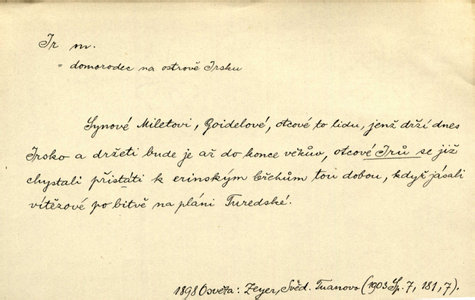 Ir m.
= domorodec na ostrově Irsku
Synové Miletovi, Goidelové, otcové to lidu, jenž drží dnes
Irsko a držeti bude je až do konce věkův, otcové Irů se již
chystali přistáti k erinským břehům tou dobou, když jásali
vítězové po bitvě na pláni Turedské.
1898 Osvěta: Zeyer, Svěd. Tuanovo (1903 Sp. 7, 181, 7).